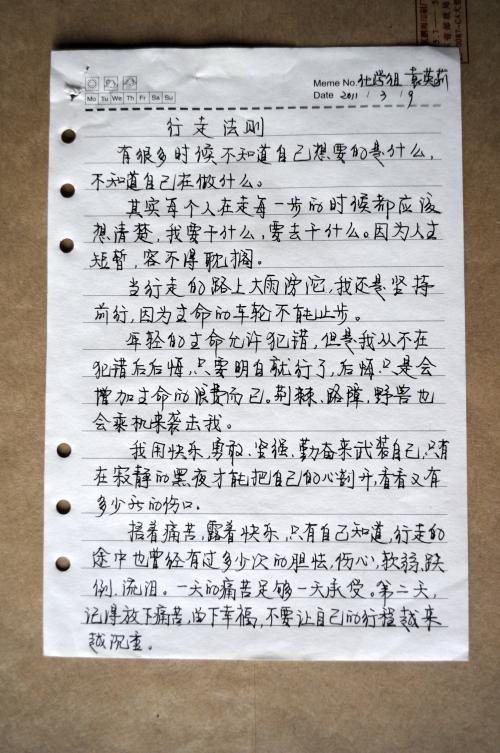 Meme No. 化学组 袁英莉
Date 2011 / 3 / 9
Mo Tu We Th Fr Sa Su
行走法则
有很多时候不知道自己想要的是什么,
不知道自己在做什么。
其实每个人在走每一步的时候都应该
想清楚,我要干什么,要去干什么。因为人生
短暂,容不得耽搁。
当行走的路上大雨滂沱,我还是坚持
前行,因为生命的车轮不能止步。
年轻的生命允许犯错,但是我从不在
犯错后后悔,只要明白就行了,后悔只是会
增加生命的浪费而已。荆棘、路障,野兽也
会乘机来袭击我。
我用快乐,勇敢、坚强、勤奋来武装自己,只有
在寂静的黑夜才能把自己的心剖开,看看又有
多少新的伤口。
捂着痛苦,露着快乐,只有自己知道,行走的
途中也曾经有过多少次的胆怯,伤心,软弱,跌
倒,流泪。一天的痛苦足够一天承受。第二天,
记得放下痛苦,留下幸福,不要让自己的行程越来
越沉重。